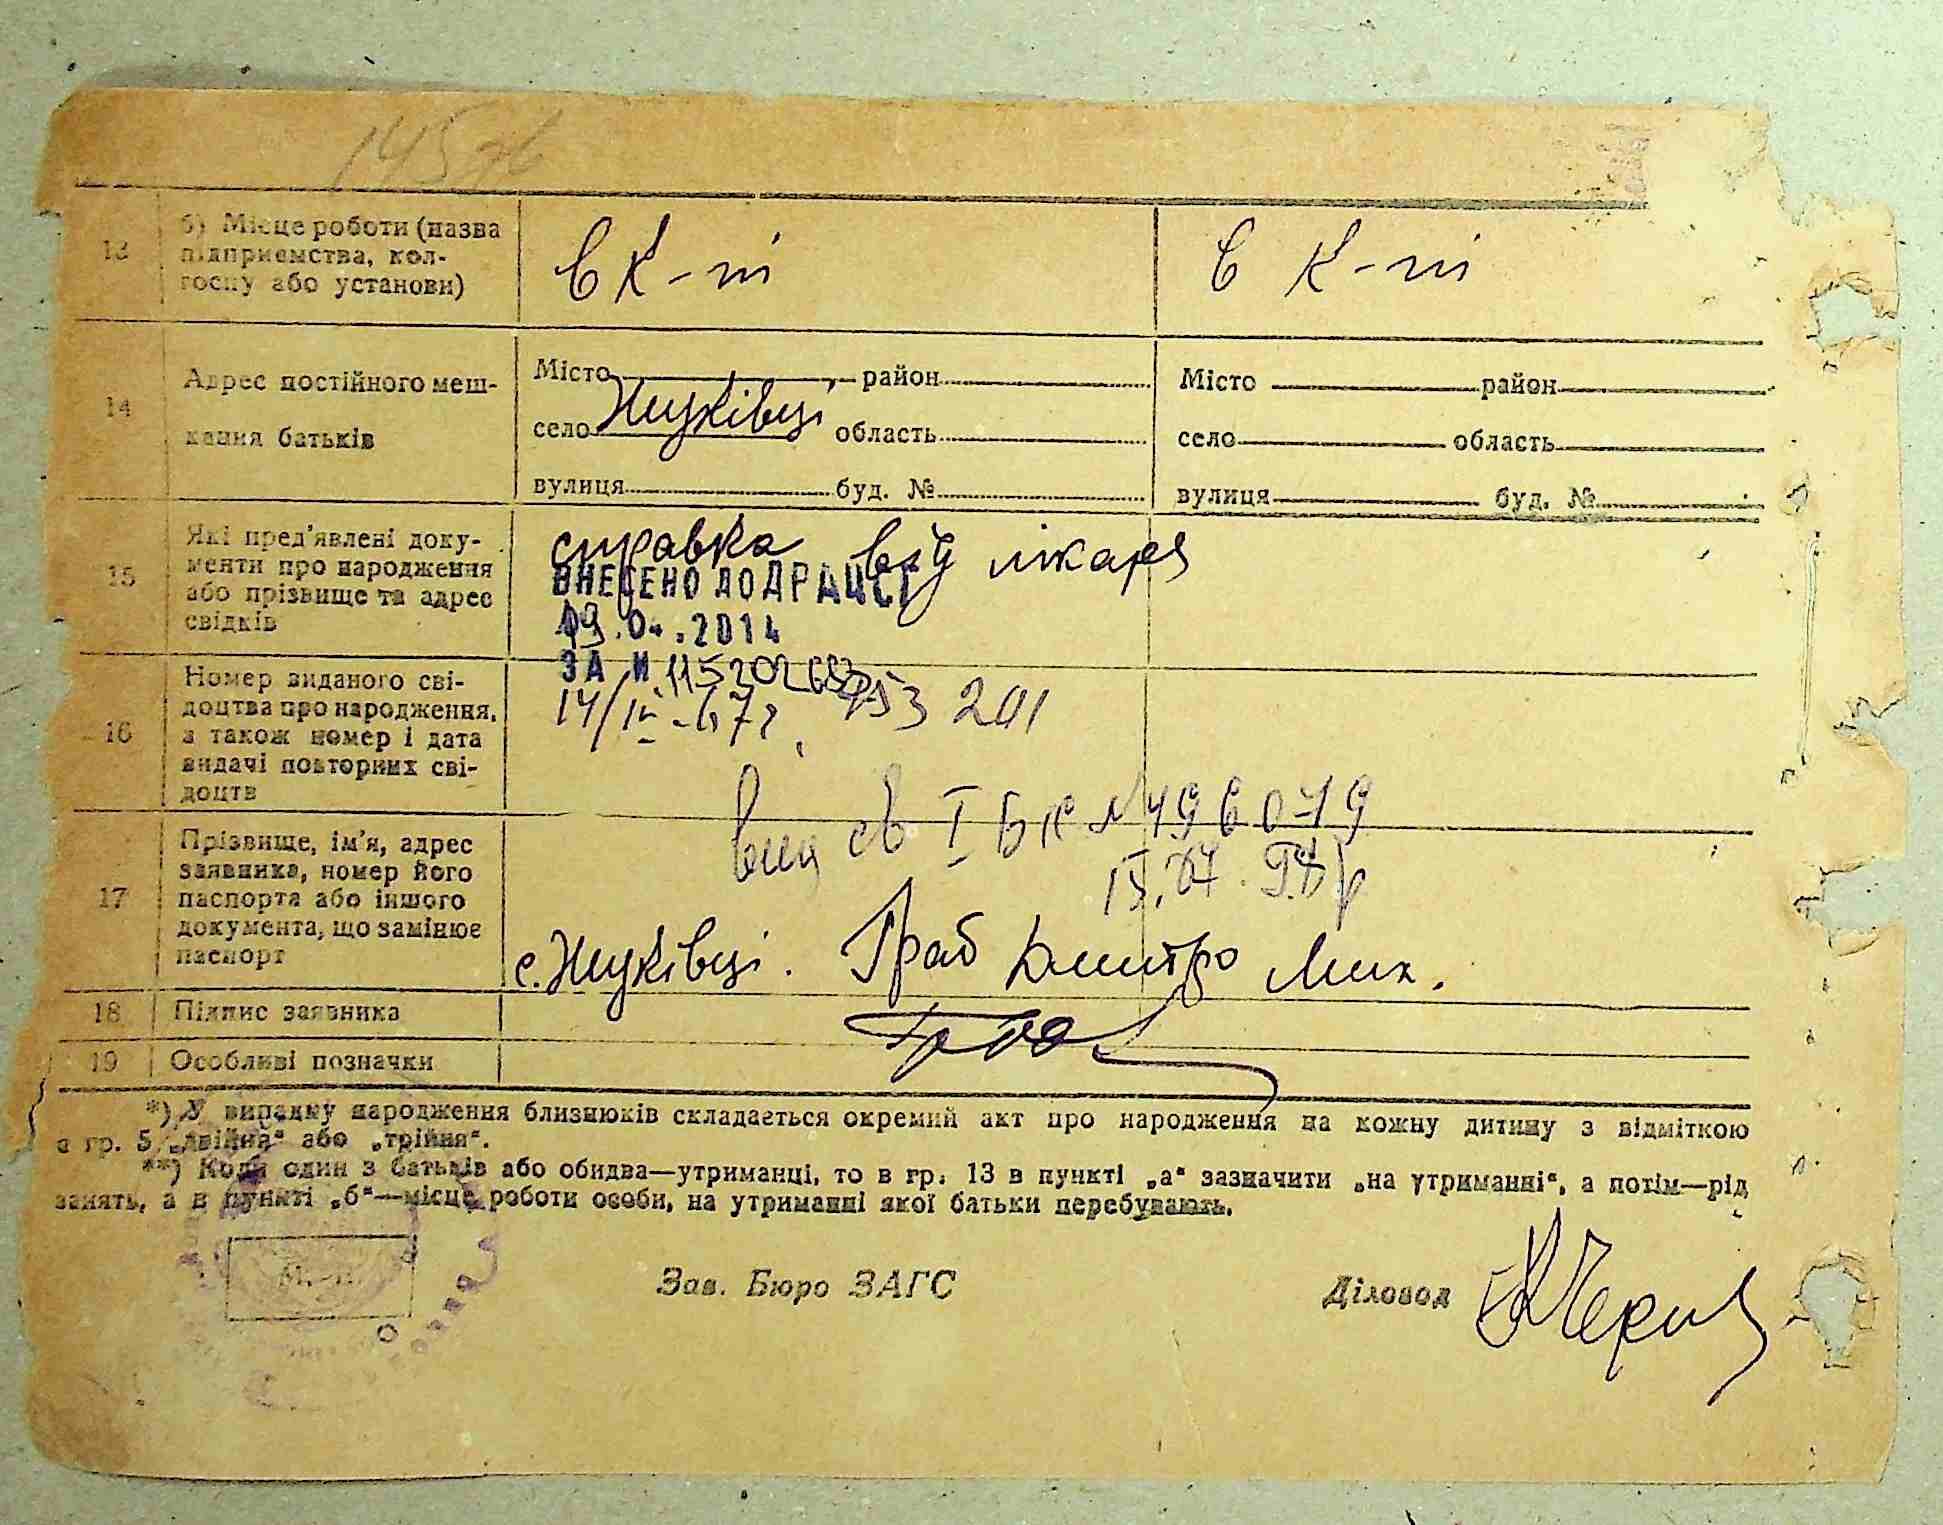 145
13 б) Місце роботи (назва підприємства, колгоспу або установи) в К-пі в К-пі
14 Адрес постійного мешкання батьків
Місто район Місто район
село Жуківці область село область
вулиця буд. № вулиця буд. №
15 Які пред'явлені документи про народження або прізвище та адрес свідків
справка від лікаря
ВНЕСЕНО ДО ДРАЦСГ
2014
ЗА №
16 Номер виданого свідоцтва про народження, а також номер і дата видачі повторних свідоцтв
201
вид св І БК № 496079
17 Прізвище, ім'я, адрес заявника, номер його паспорта або іншого документа, що замінює паспорт
с. Жуківці. Граб Дмитро Мих.
18 Підпис заявника
19 Особливі позначки
*) У випадку народження близнюків складається окремий акт про народження на кожну дитину з відміткою
в гр. 5 „двійня“ або „трійня“.
**) Коли один з батьків або обидва—утриманці, то в гр. 13 в пункті „а“ зазначити „на утриманні“, а потім—рід
занять, а в пункті „б“—місце роботи особи, на утриманні якої батьки перебувають.
М. п.
Зав. Бюро ЗАГС Діловод